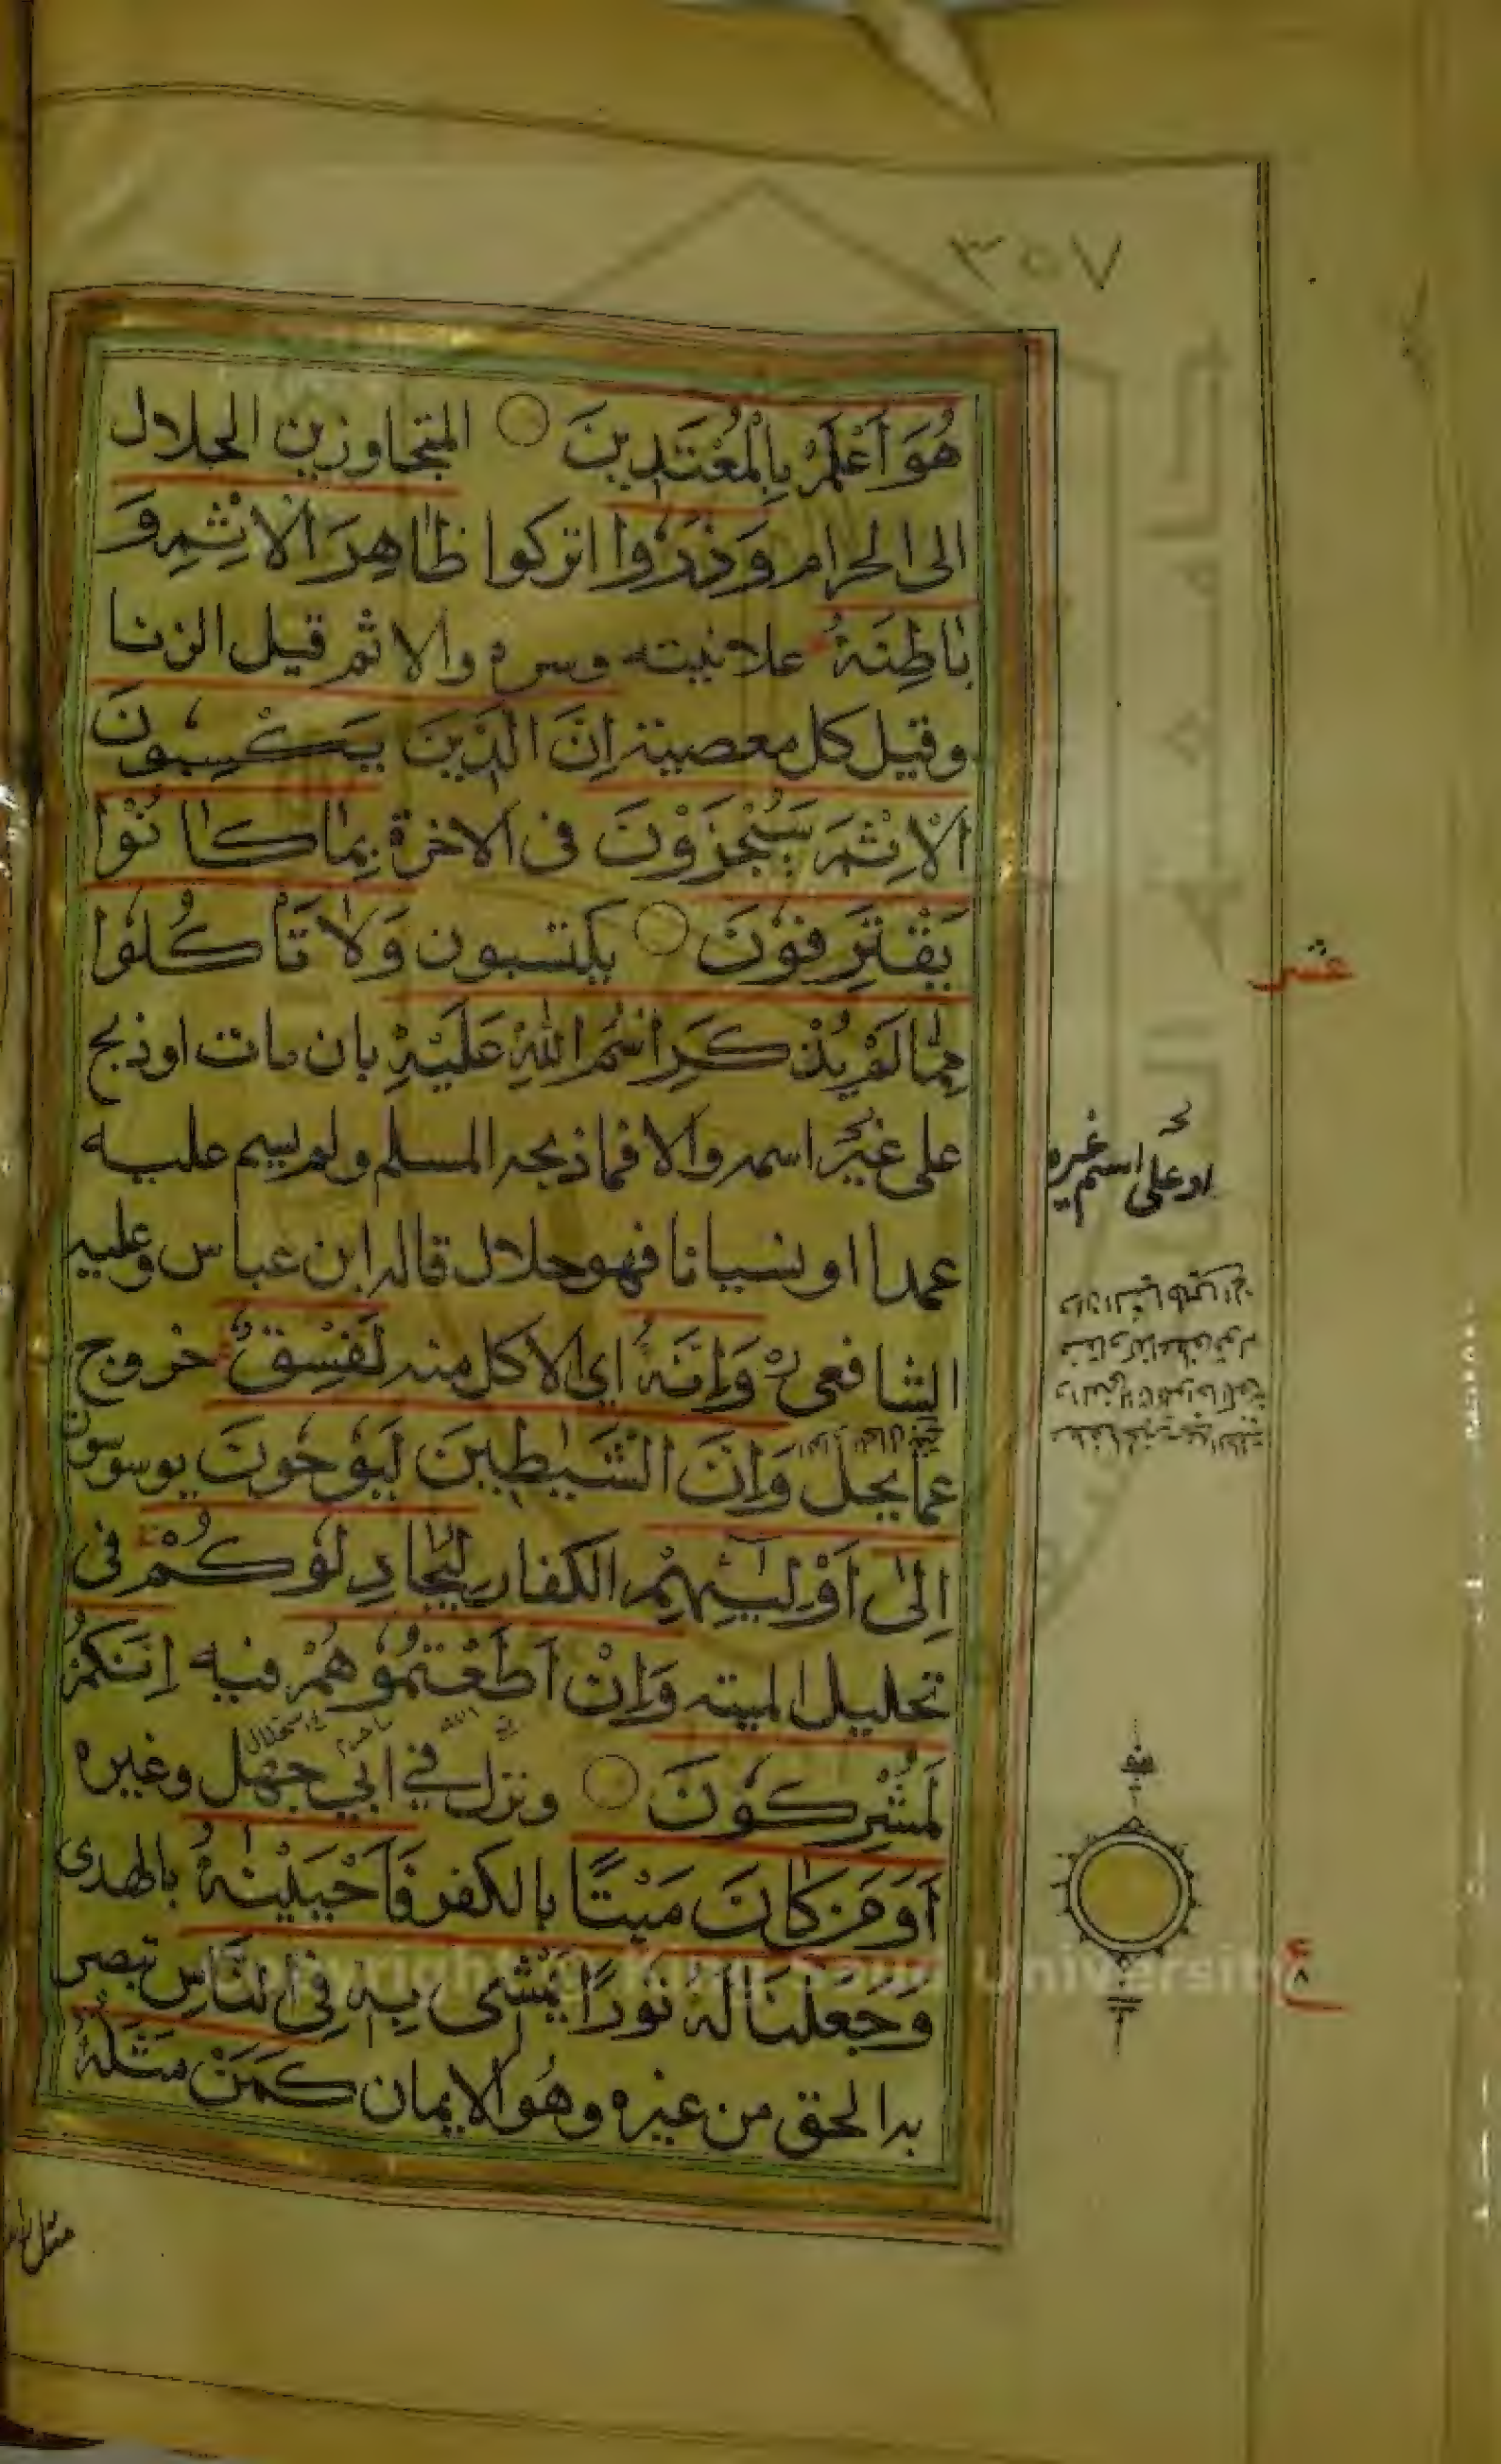 ٣٥٧
هُوَ اَعْلَمُ بِالْمُعْتَدِينَ المتجاوزين الحلال
الى الحرام وَذَرُوا اتركوا ظَاهِرَ الْاِثْمِ وَ
بَاطِنَهُ علانيته وسره والاثم قيل الزنا
وقيل كل معصية اِنَّ الَّذِينَ يَكْسِبُونَ
الْاِثْمَ سَيُجْزَوْنَ فى الاخرة بِمَا كَانُوْا
يَقْتَرِفُوْنَ يكتسبون وَلَا تَأْكُلُوْا
مِمَّا لَمْ يُذْكَرِ اسْمُ اللّٰهِ عَلَيْهِ بان مات اوذبح
على غير اسمه والا فما ذبحه المسلم ولم يسم عليه
عمدا او نسيانا فهو حلال قاله ابن عباس وعليه
الشافعى وَاِنَّهُ اي الاكل منه لَفِسْقٌ خروج
عما يحل وَاِنَّ الشَّيٰطِيْنَ لَيُوْحُوْنَ يوسوسون
اِلٰى اَوْلِيٰٓئِهِمْ الكفار لِيُجَادِلُوْكُمْ فى
تحليل الميته وَاِنْ اَطَعْتُمُوْهُمْ فيه اِنَّكُمْ
لَمُشْرِكُوْنَ ونزل في ابي جهل وغيره
اَوَمَنْ كَانَ مَيْتًا بالكفر فَاَحْيَيْنٰهُ بالهدى
وَجَعَلْنَا لَهُ نُوْرًا يَمْشِى بِهٖ فِى النَّاسِ تبصر
به الحق من غيره وهو الايمان كَمَنْ مَثَلُهُ
عشر
او على اسم غيره
ع
Copyright © King Saud University